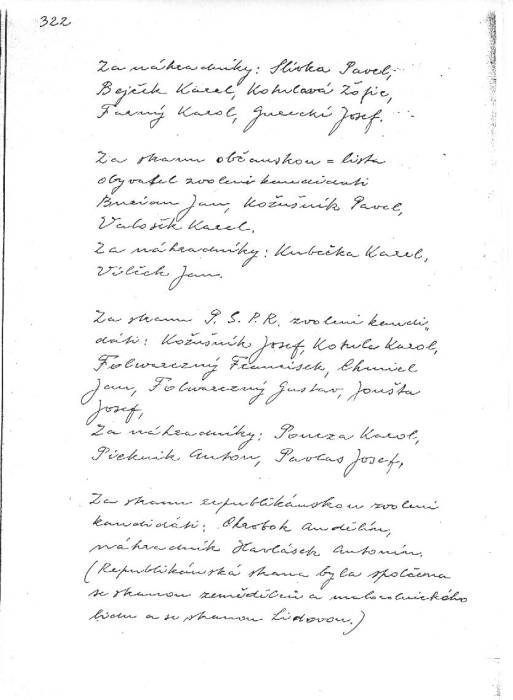 322
Za náhradníky: Slivka Pavel,
Bejček Karel, Kotulová Žofie,
Farný Karol, Gurecki Josef.
Za stranu občanskou = lista
obyvatel zvoleni kandidati
Burian Jan, Kožušník Pavel,
Valosík Karel.
Za náhradníky: Kubečka Karel,
Vilček Jan.
Za stranu P. S. P. R. zvoleni kandi„
dáti: Kožušník Josef, Kotula Karol,
Folwarczný Francisek, Chmiel
Jan, Folwarczný Gustav, Joušta
Josef,
Za náhradníky: Poncza Karol,
Pieknik Anton, Pavlas Josef,
Za stranu republikánskou zvoleni
kandidáti: Chrobok Andělín,
náhradník Havlásek Antonín.
(Republikánská strana byla společna
se stranou zemědělců a malorolnického
lidu a se stranou Lidovou.)